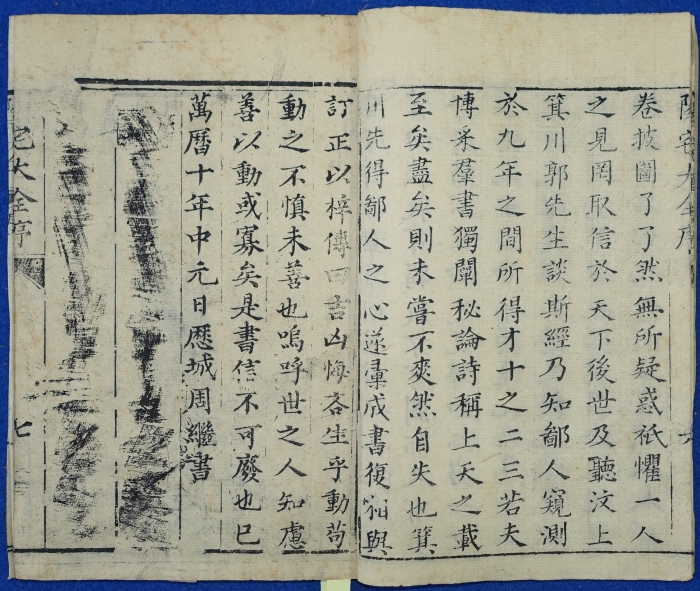 陽宅大全序
卷披圖了了然無所疑惑祇懼一人
之見罔取信於天下後世及聽汶上
箕川郭先生談斯經乃知鄙人窺測
於九年之間所得才十之二三若夫
博采羣書獨闡秘論詩稱上天之載
至矣盡矣則未嘗不爽然自失也箕
川先得鄙人之心遂彙成書復相與
訂正以梓傳曰吉凶悔吝生乎動苟
動之不慎未善也嗚呼世之人知慮
善以動或寡矣是書信不可廢也已
萬曆十年中元日歷城周繼書
宅大全序
七